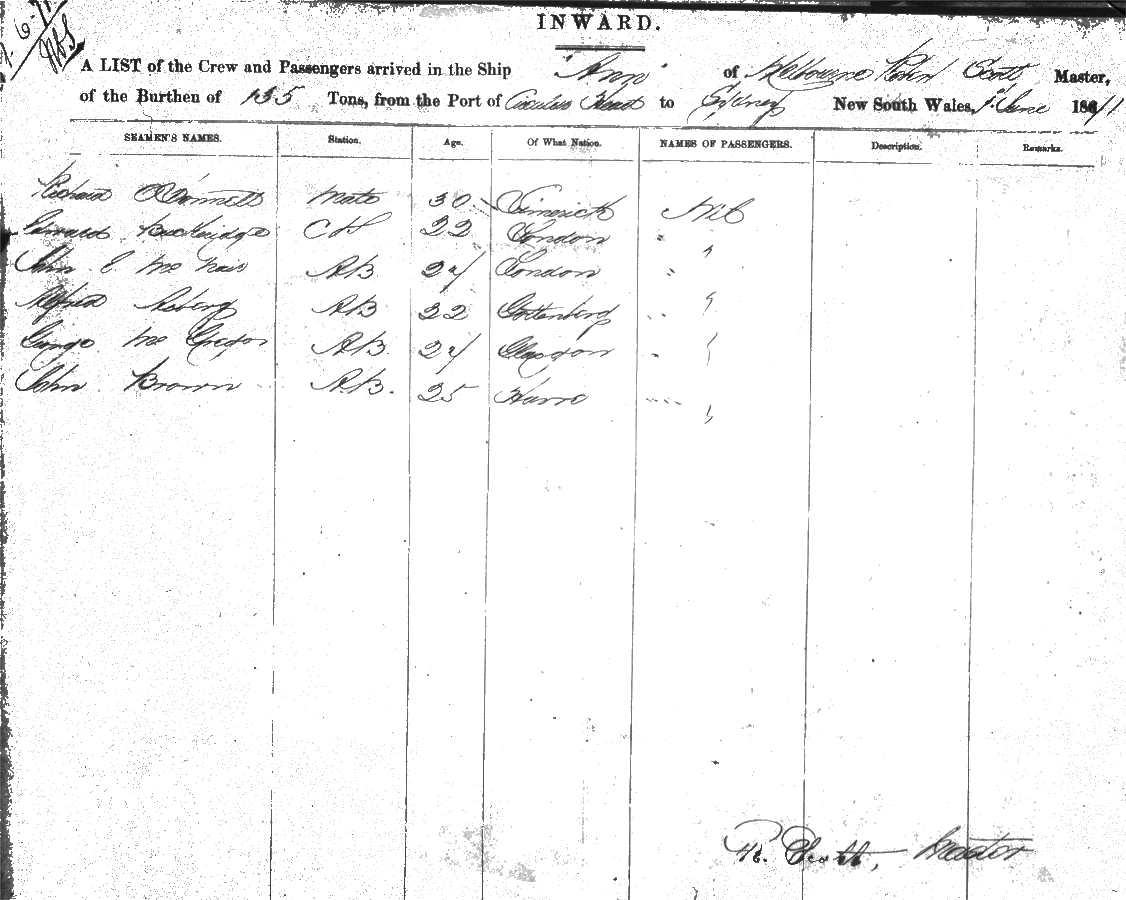 INWARD.
A LIST of the Crew and Passengers arrived in the Ship "Ann" of Melbourne Robert Scott Master,
of the Burthen of 135 Tons, from the Port of Circular Head to Sydney New South Wales, 1st June 18
SEAMEN'S NAMES. Station. Age. Of What Nation. NAMES OF PASSENGERS. Description. Remarks.
Richard O'Donnell Mate 30 Limerick Nil
Edward Buckridge C & S 22 London "
John E McNair AB 24 London "
Alfred 22 AB Gottenberg "
George McGregor AB 24 Glasgow "
John Brown A.B. 25 Havre "
R. Scott, Master